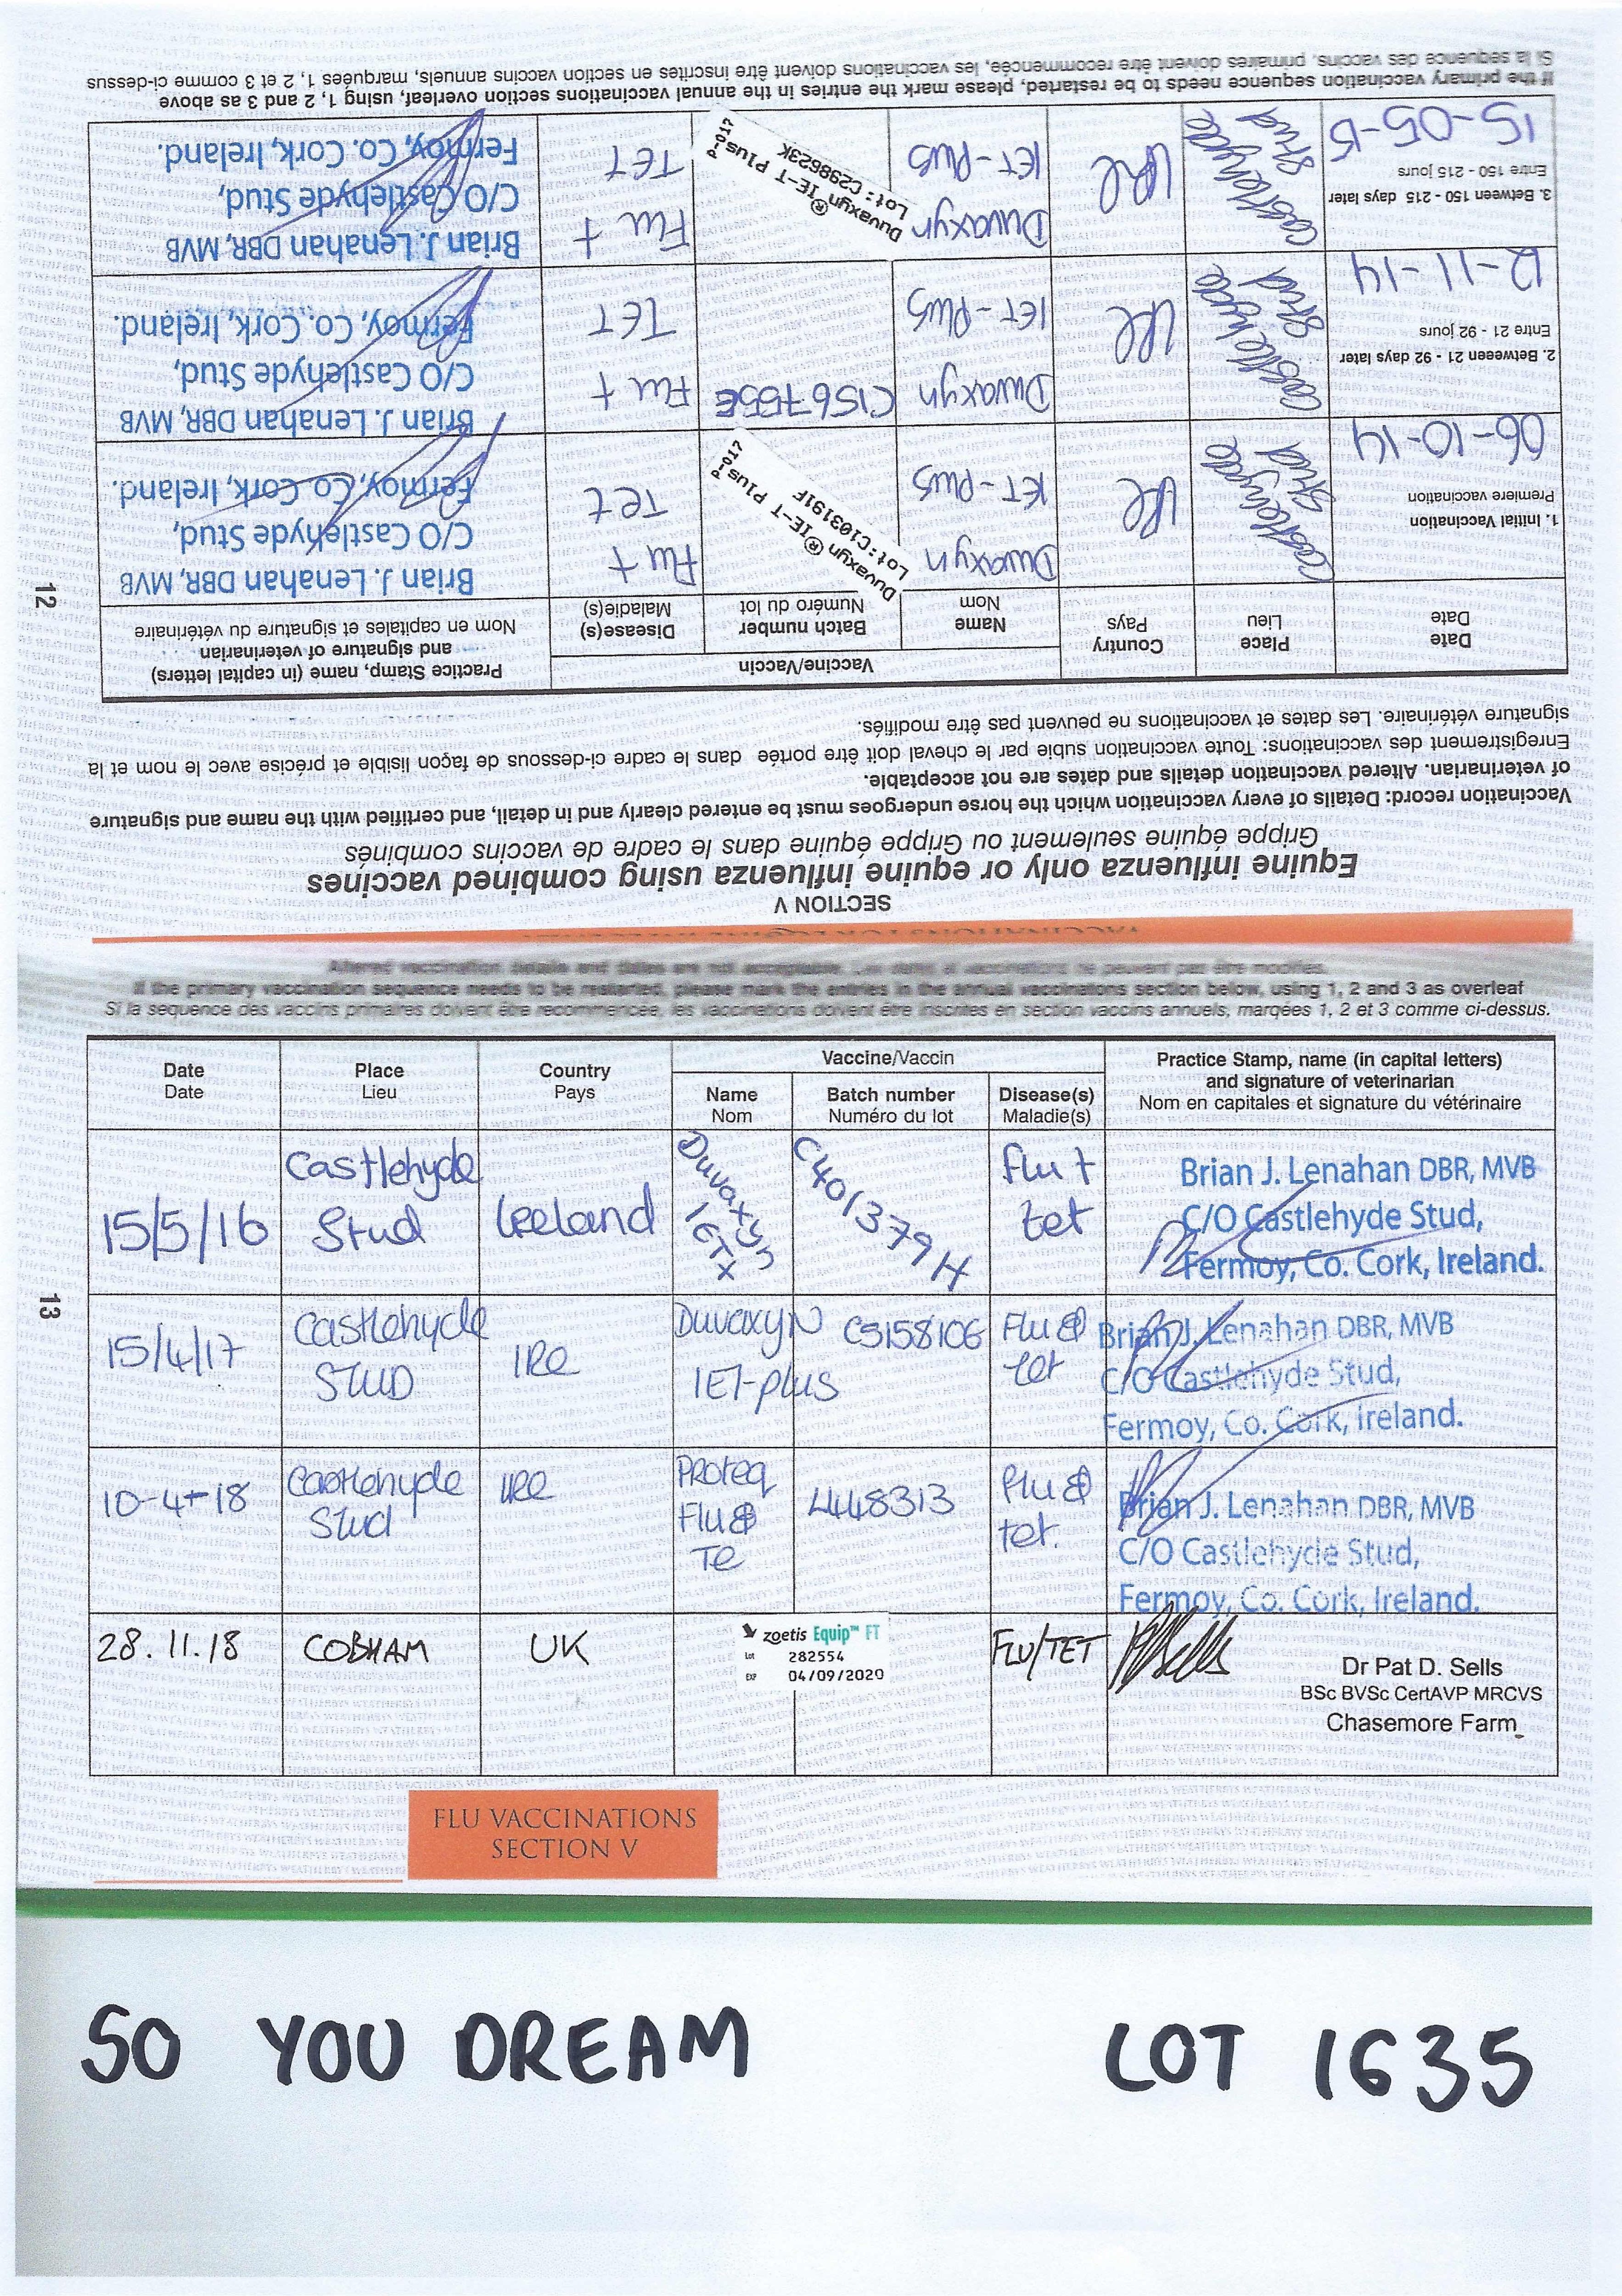 SECTION V
Equine influenza only or equine influenza using combined vaccines
Grippe équine seulement ou Grippe équine dans le cadre de vaccins combinés
Vaccination record: Details of every vaccination which the horse undergoes must be entered clearly and in detail, and certified with the name and signature
of veterinarian. Altered vaccination details and dates are not acceptable.
Enregistrement des vaccinations: Toute vaccination subie par le cheval doit être portée dans le cadre ci-dessous de façon lisible et précise avec le nom et la
signature vétérinaire. Les dates et vaccinations ne peuvent pas être modifiés.
Date
Date
Place
Lieu
Country
Pays
Vaccine/Vaccin
Name
Nom
Batch number
Numéro du lot
Disease(s)
Maladie(s)
Practice Stamp, name (in capital letters)
and signature of veterinarian
Nom en capitales et signature du vétérinaire
1. Initial Vaccination
Premiere vaccination
06-10-14
Castlehyde
Stud
IRE
Duvaxyn
IET-Plus
Duvaxyn® IE-T Plus
Lot: C103191F
P-017
Flu +
Tet
Brian J. Lenahan DBR, MVB
C/O Castlehyde Stud,
Fermoy, Co. Cork, Ireland.
2. Betweeen 21 - 92 days later
Entre 21 - 92 jours
12-11-14
Castlehyde
Stud
IRE
Duvaxyn
IET-Plus
C156755E
Flu +
TET
Brian J. Lenahan DBR, MVB
C/O Castlehyde Stud,
Fermoy, Co. Cork, Ireland.
3. Between 150 - 215 days later
Entre 150 - 215 jours
15-05-15
Castlehyde
Stud
IRE
Duvaxyn
IET-Plus
Duvaxyn® IE-T Plus
Lot: C298623K
P-017
Flu +
TET
Brian J. Lenahan DBR, MVB
C/O Castlehyde Stud,
Fermoy, Co. Cork, Ireland.
If the primary vaccination sequence needs to be restarted, please mark the entries in the annual vaccinations section overleaf, using 1, 2 and 3 as above
Si la sequence des vaccins, primaires doivent être recommencée, les vaccinations doivent être inscrites en section vaccins annuels, marquées 1, 2 et 3 comme ci-dessus
12
Altered vaccination details and dates are not acceptable. Les dates et vaccinations ne peuvent pas être modifiés.
If the primary vaccination sequence needs to be restarted, please mark the entries in the annual vaccinations section below, using 1, 2 and 3 as overleaf
Si la sequence des vaccins primaires doivent être recommencée, les vaccinations doivent être inscrites en section vaccins annuels, marqées 1, 2 et 3 comme ci-dessus.
Date
Date
Place
Lieu
Country
Pays
Vaccine/Vaccin
Name
Nom
Batch number
Numéro du lot
Disease(s)
Maladie(s)
Practice Stamp, name (in capital letters)
and signature of veterinarian
Nom en capitales et signature du vétérinaire
15/5/16
Castlehyde
Stud
Ireland
Duvaxyn
IETX
C401379H
Flu +
tet
Brian J. Lenahan DBR, MVB
C/O Castlehyde Stud,
Fermoy, Co. Cork, Ireland.
15/4/17
Castlehyde
STUD
IRe
Duvaxyn
IET-plus
C515810G
Flu &
tet
Brian J. Lenahan DBR, MVB
C/O Castlehyde Stud,
Fermoy, Co. Cork, Ireland.
10-4-18
Castlehyde
Stud
IRe
Proteq
Flu &
Te
L448313
Flu &
tet.
Brian J. Lenahan DBR, MVB
C/O Castlehyde Stud,
Fermoy, Co. Cork, Ireland.
28.11.18
COBHAM
UK
zoetis Equip™ FT
Lot 282554
EXP 04/09/2020
FLU/TET
Dr Pat D. Sells
BSc BVSc CertAVP MRCVS
Chasemore Farm
13
FLU VACCINATIONS
SECTION V
SO YOU DREAM LOT 1635